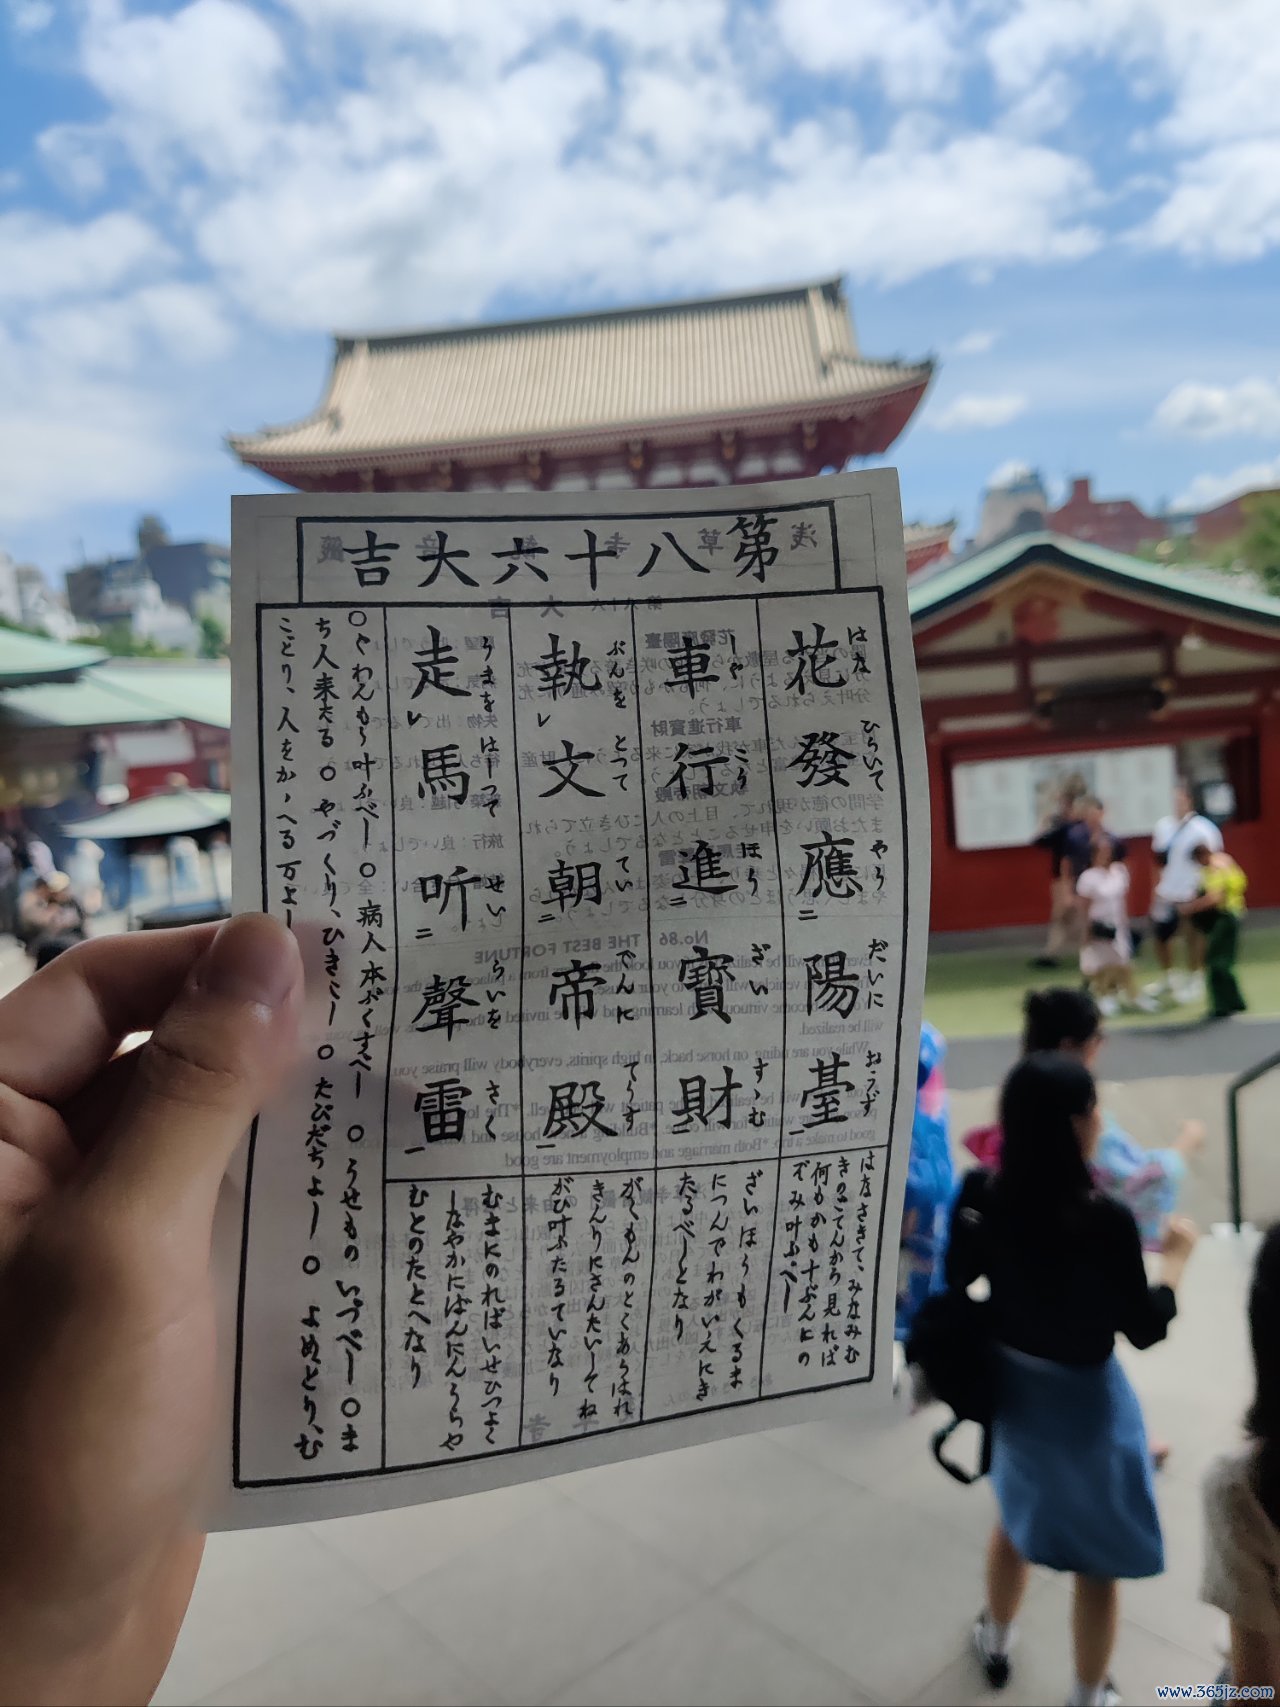 第八十六大吉
花發應陽臺
はな ひらいて やう だいに おうず
はなさきて、みなみむ
きのごてんから見れば
何もかも十ぶんにの
ぞみ叶ふべし
車行進寶財
しや こう ほう ざい すすむ
ざいほうもくるま
につんでわがいえにき
たるべしとなり
執文朝帝殿
ぶんを とつて てい でんに てうす
がくもんのとくあらはれ
きんりにさんたいしてね
がひ叶ふたるていなり
走馬听聲雷
うまを はしつて せい らいを きく
むまにのればいせひつよく
しなやかにばんにんうらや
むとのたとへなり
〇ぐわんもう叶ふべし 〇病人本ぷくすべし 〇うせもの いづべし 〇ま
ち人来たる 〇やづくり、ひきこし 〇たびだちよし 〇よめとり、む
ことり、人をかゝへる万よし
No.86 THE BEST FORTUNE
www.365jz.com